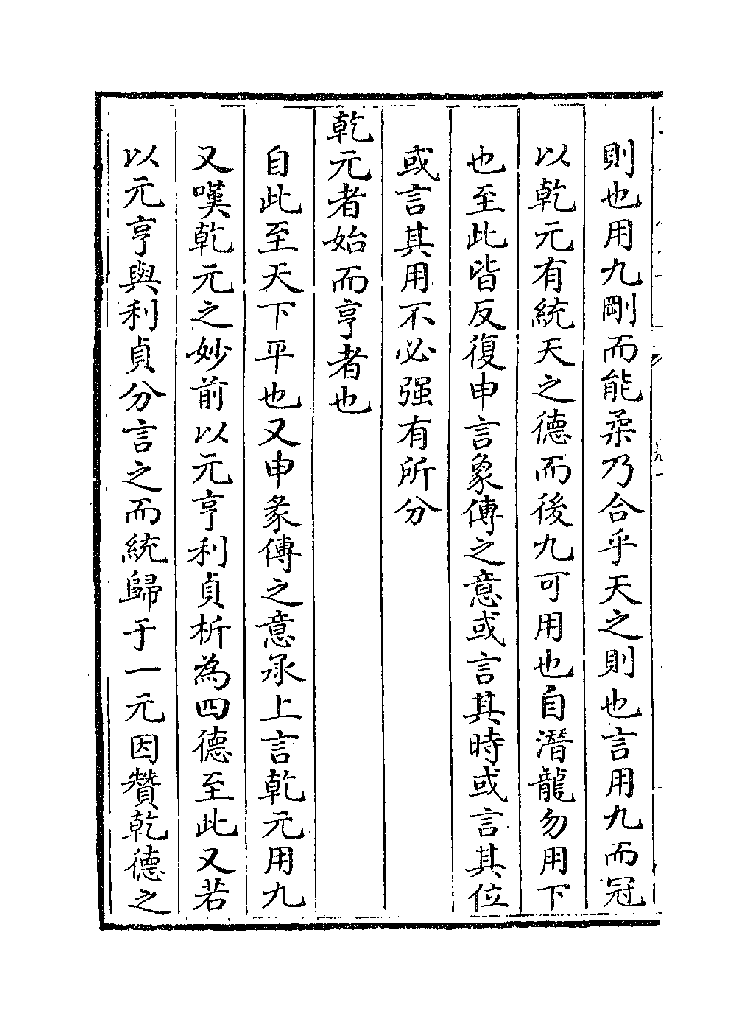 則也用九剛而能柔乃合乎天之則也言用九而冠
以乾元有統天之德而後九可用也自潛龍勿用下
也至此皆反復申言象傳之意或言其時或言其位
或言其用不必强有所分
乾元者始而亨者也
自此至天下平也又申彖傳之意承上言乾元用九
又嘆乾元之妙前以元亨利貞析為四德至此又若
以元亨與利貞分言之而統歸于一元因贊乾德之